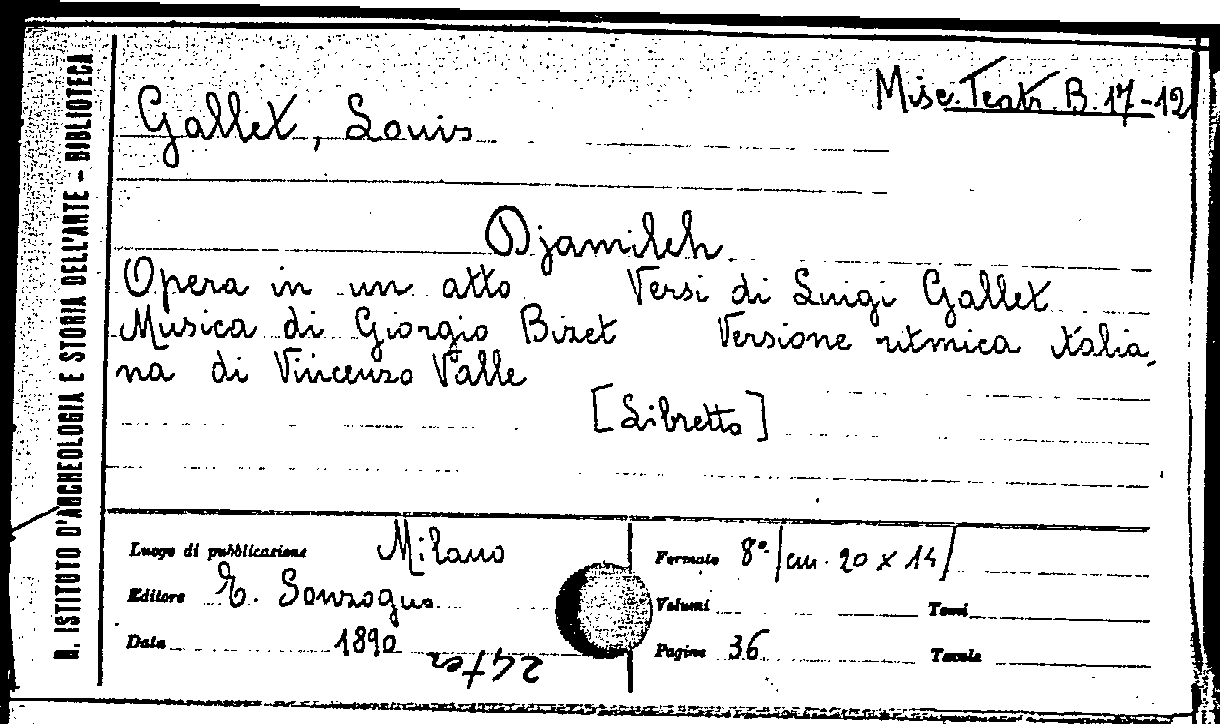 R. ISTITUTO D'ARCHEOLOGIA E STORIA DELL'ARTE - BIBLIOTECA
Misc. Teatr. B. 17-12
Gallet, Louis
Djamileh
Opera in un atto Versi di Luigi Gallet
Musica di Giorgio Bizet Versione ritmica italia,
na di Vincenzo Valle
[Libretto]
Luogo di pubblicazione Milano
Editore E. Sonzogno
Data 1890
Formato 8° /cm. 20 x 14/
Volumi Tomi
Pagine 36 Tavole